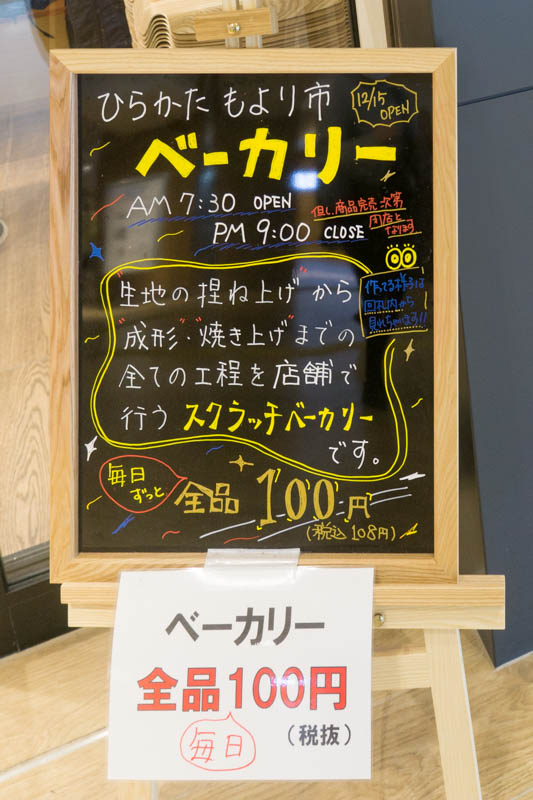 ひらかた もより市
12/15
OPEN
ベーカリー
AM 7:30 OPEN
PM 9:00 CLOSE
但し、商品完売次第
閉店と
なります
"生地の捏ね上げ"から
"成形"・"焼き上げ"までの
全ての工程を店舗で
行う スクラッチベーカリー
です。
作ってる様子は
改札内から
見れちゃいます!!
毎日
ずっと
全品 100円
(税込 108円)
ベーカリー
全品100円
毎日
(税抜)